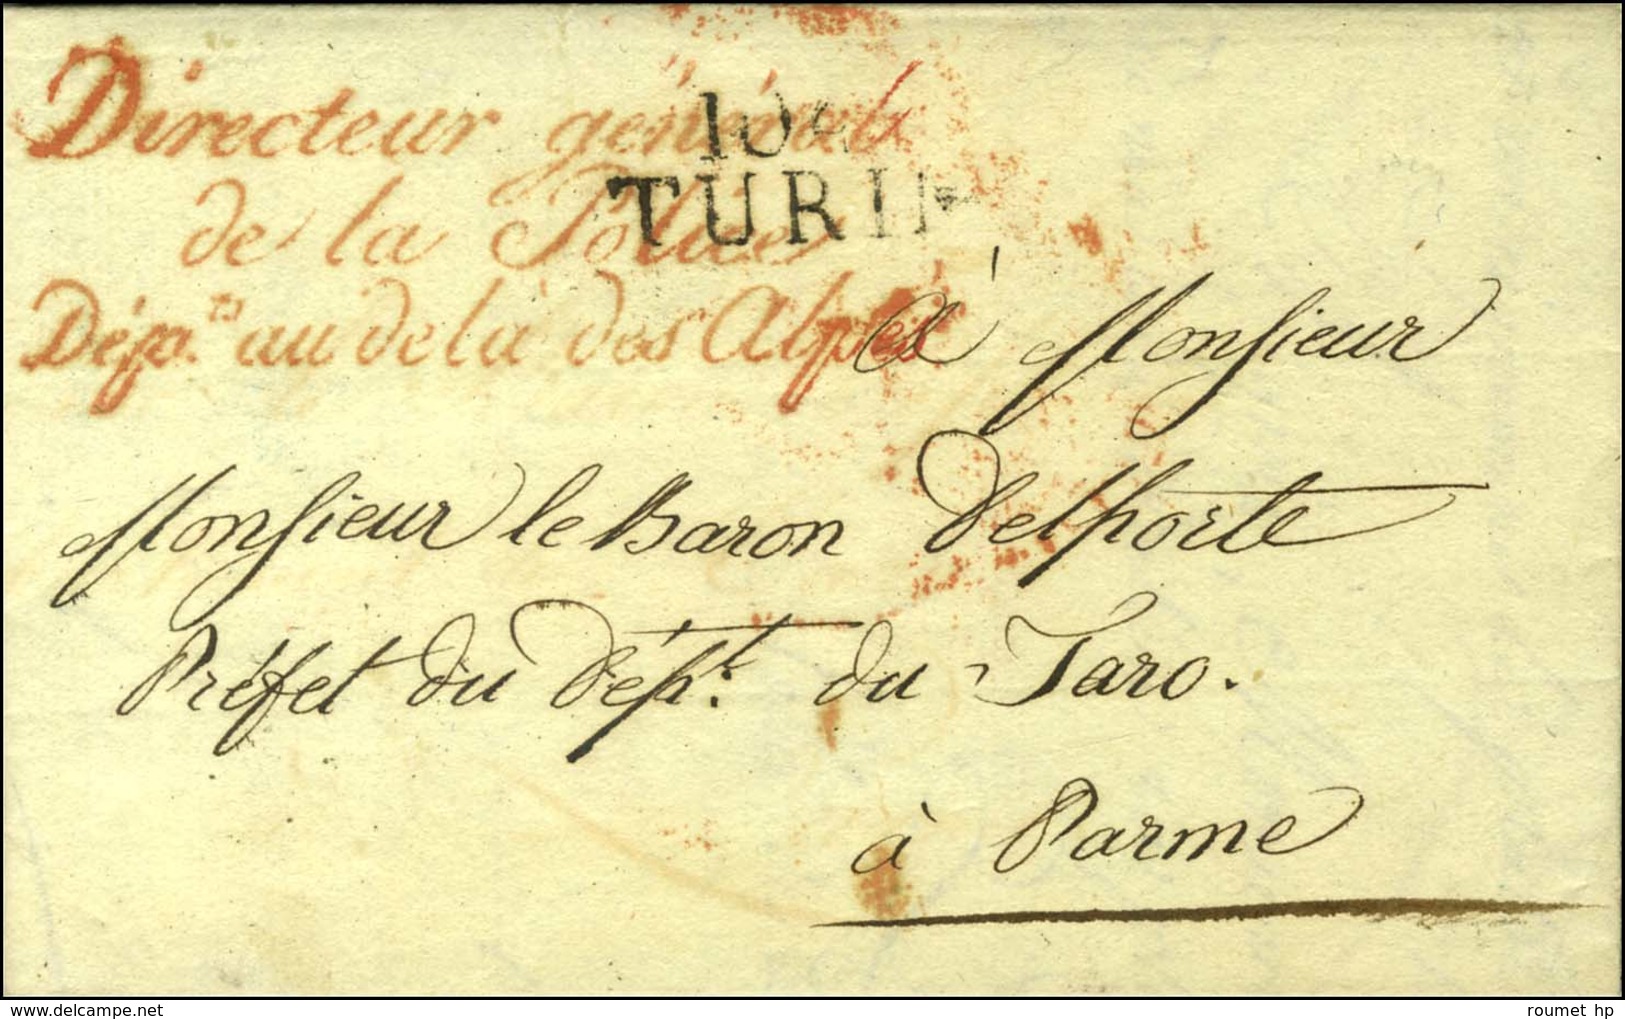 Directeur général
de la Police
Dép.ts au delà des Alpes
104
TURIN
À Monsieur
Monsieur le Baron Delporte
Préfet du Dép.t du Taro.
à Parme
www.delcampe.net
roumet hp